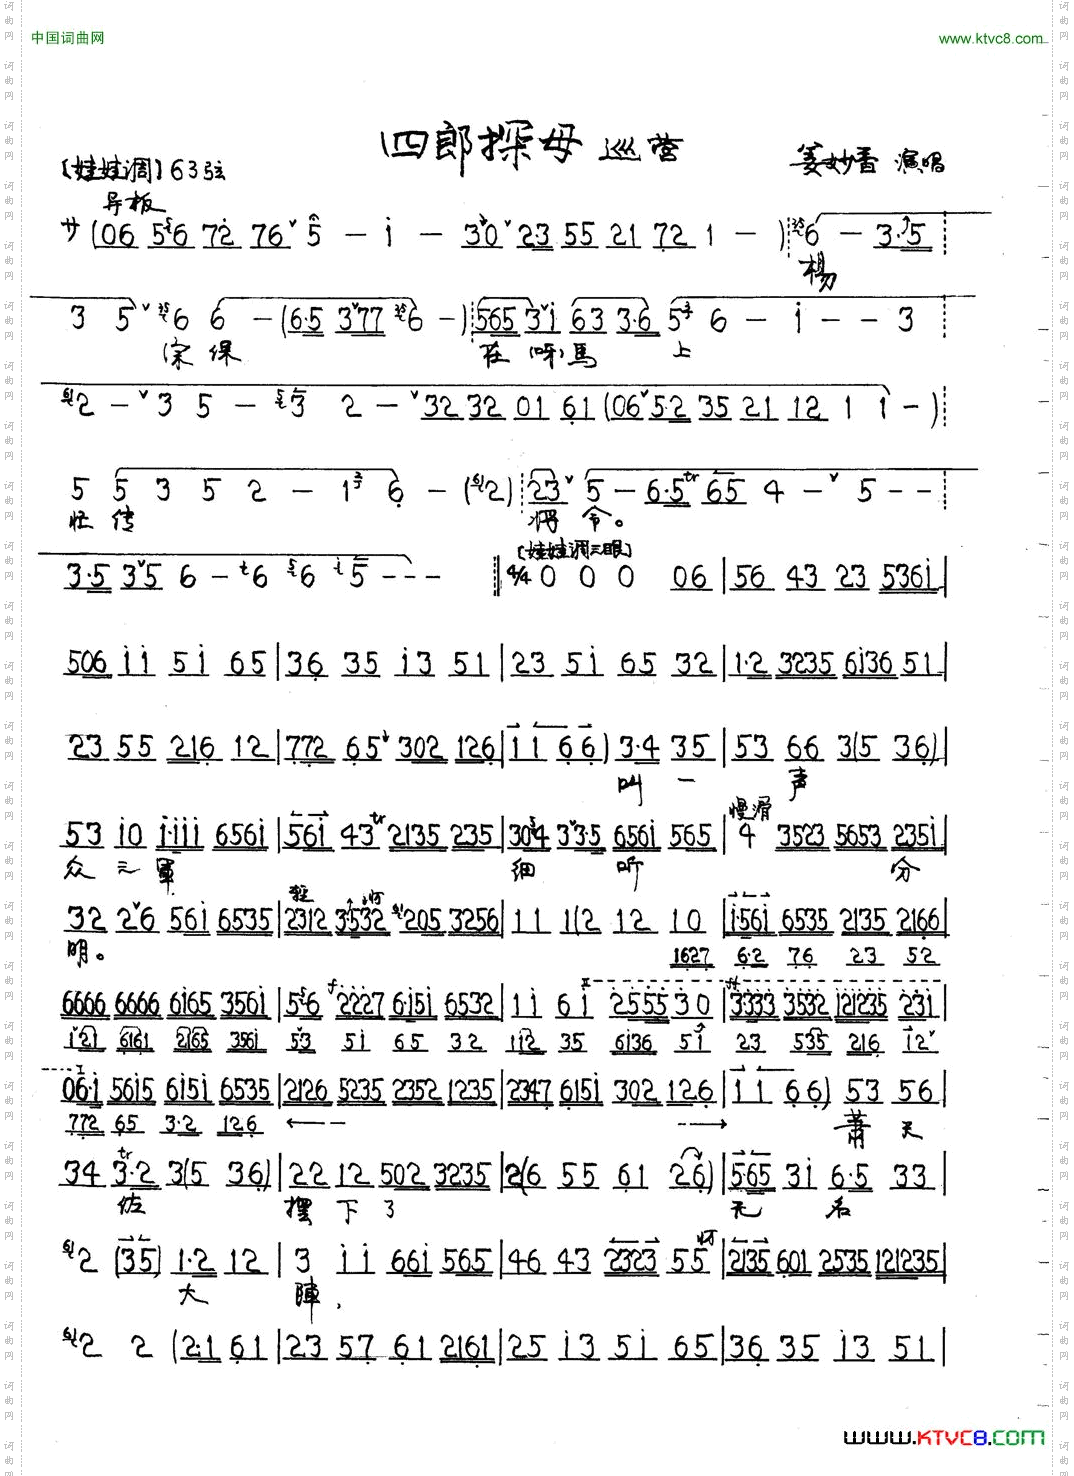 中国词曲网 www.ktvc8.com
四郎探母 巡营
[娃娃调] 63弦 姜妙香 演唱
导板
サ (06 56 72 76 5 — i — 30 23 55 21 72 1 — ) 6 — 3·5
杨
3 5 6 6 — (6·5 377 6 —) 565 3i 63 3·6 5 6 — i — — 3
宗保 在(呀)馬 上
2 — 3 5 — 3 2 — 32 32 01 61 (06 5·2 35 21 12 1 1 —)
5 5 3 5 2 — 1 6 — (2) 23 5 — 6·5 65 4 — 5 — —
忙传 将 令。
[娃娃调三眼]
3·5 35 6 — 6 6 5 — — — 4/4 0 0 0 06 | 56 43 23 536i |
506 ii 5i 65 | 36 35 i3 51 | 23 5i 65 32 | 1·2 3235 6i36 51 |
23 55 216 12 | 772 65 302 126 | 11 66) 3·4 35 | 53 66 3(5 36) |
叫 一 声
慢滑
53 i0 i·iii 656i | 56i 43 2135 235 | 304 33·5 656i 565 | 4 3523 5653 235i |
众三軍 细 听 分
32 26 56i 6535 | 2312 3532 205 3256 | 11 1(2 12 10 | i·56i 6535 2135 2166 |
明。
1627 6·2 76 23 52
6666 6666 6i65 356i | 56 2227 6·i5i 6532 | 1i 6i 2555 30 | 3333 3532 121235 23i |
i2i 6i6i 2i65 356i 53 5i 65 32 112 35 6i36 5i 23 535 216 12
06·i 56i5 6i5i 6535 | 2126 5235 2352 1235 | 2347 6i5i 302 126 | 11 66) 53 56 |
772 65 3·2 126
蕭 天
34 3·2 3(5 36) | 22 12 502 3235 | 2(6 55 61 26) | 565 3i 6·5 33 |
佐 摆 下 了 无 名
2 (35) 1·2 12 | 3 ii 66i 565 | 46 43 2323 55 | 2135 601 2535 121235 |
大 陣，
2 2 (2·1 61 | 23 57 61 2161 | 25 i3 5i 65 | 36 35 i3 51 |
www.KTVC8.com